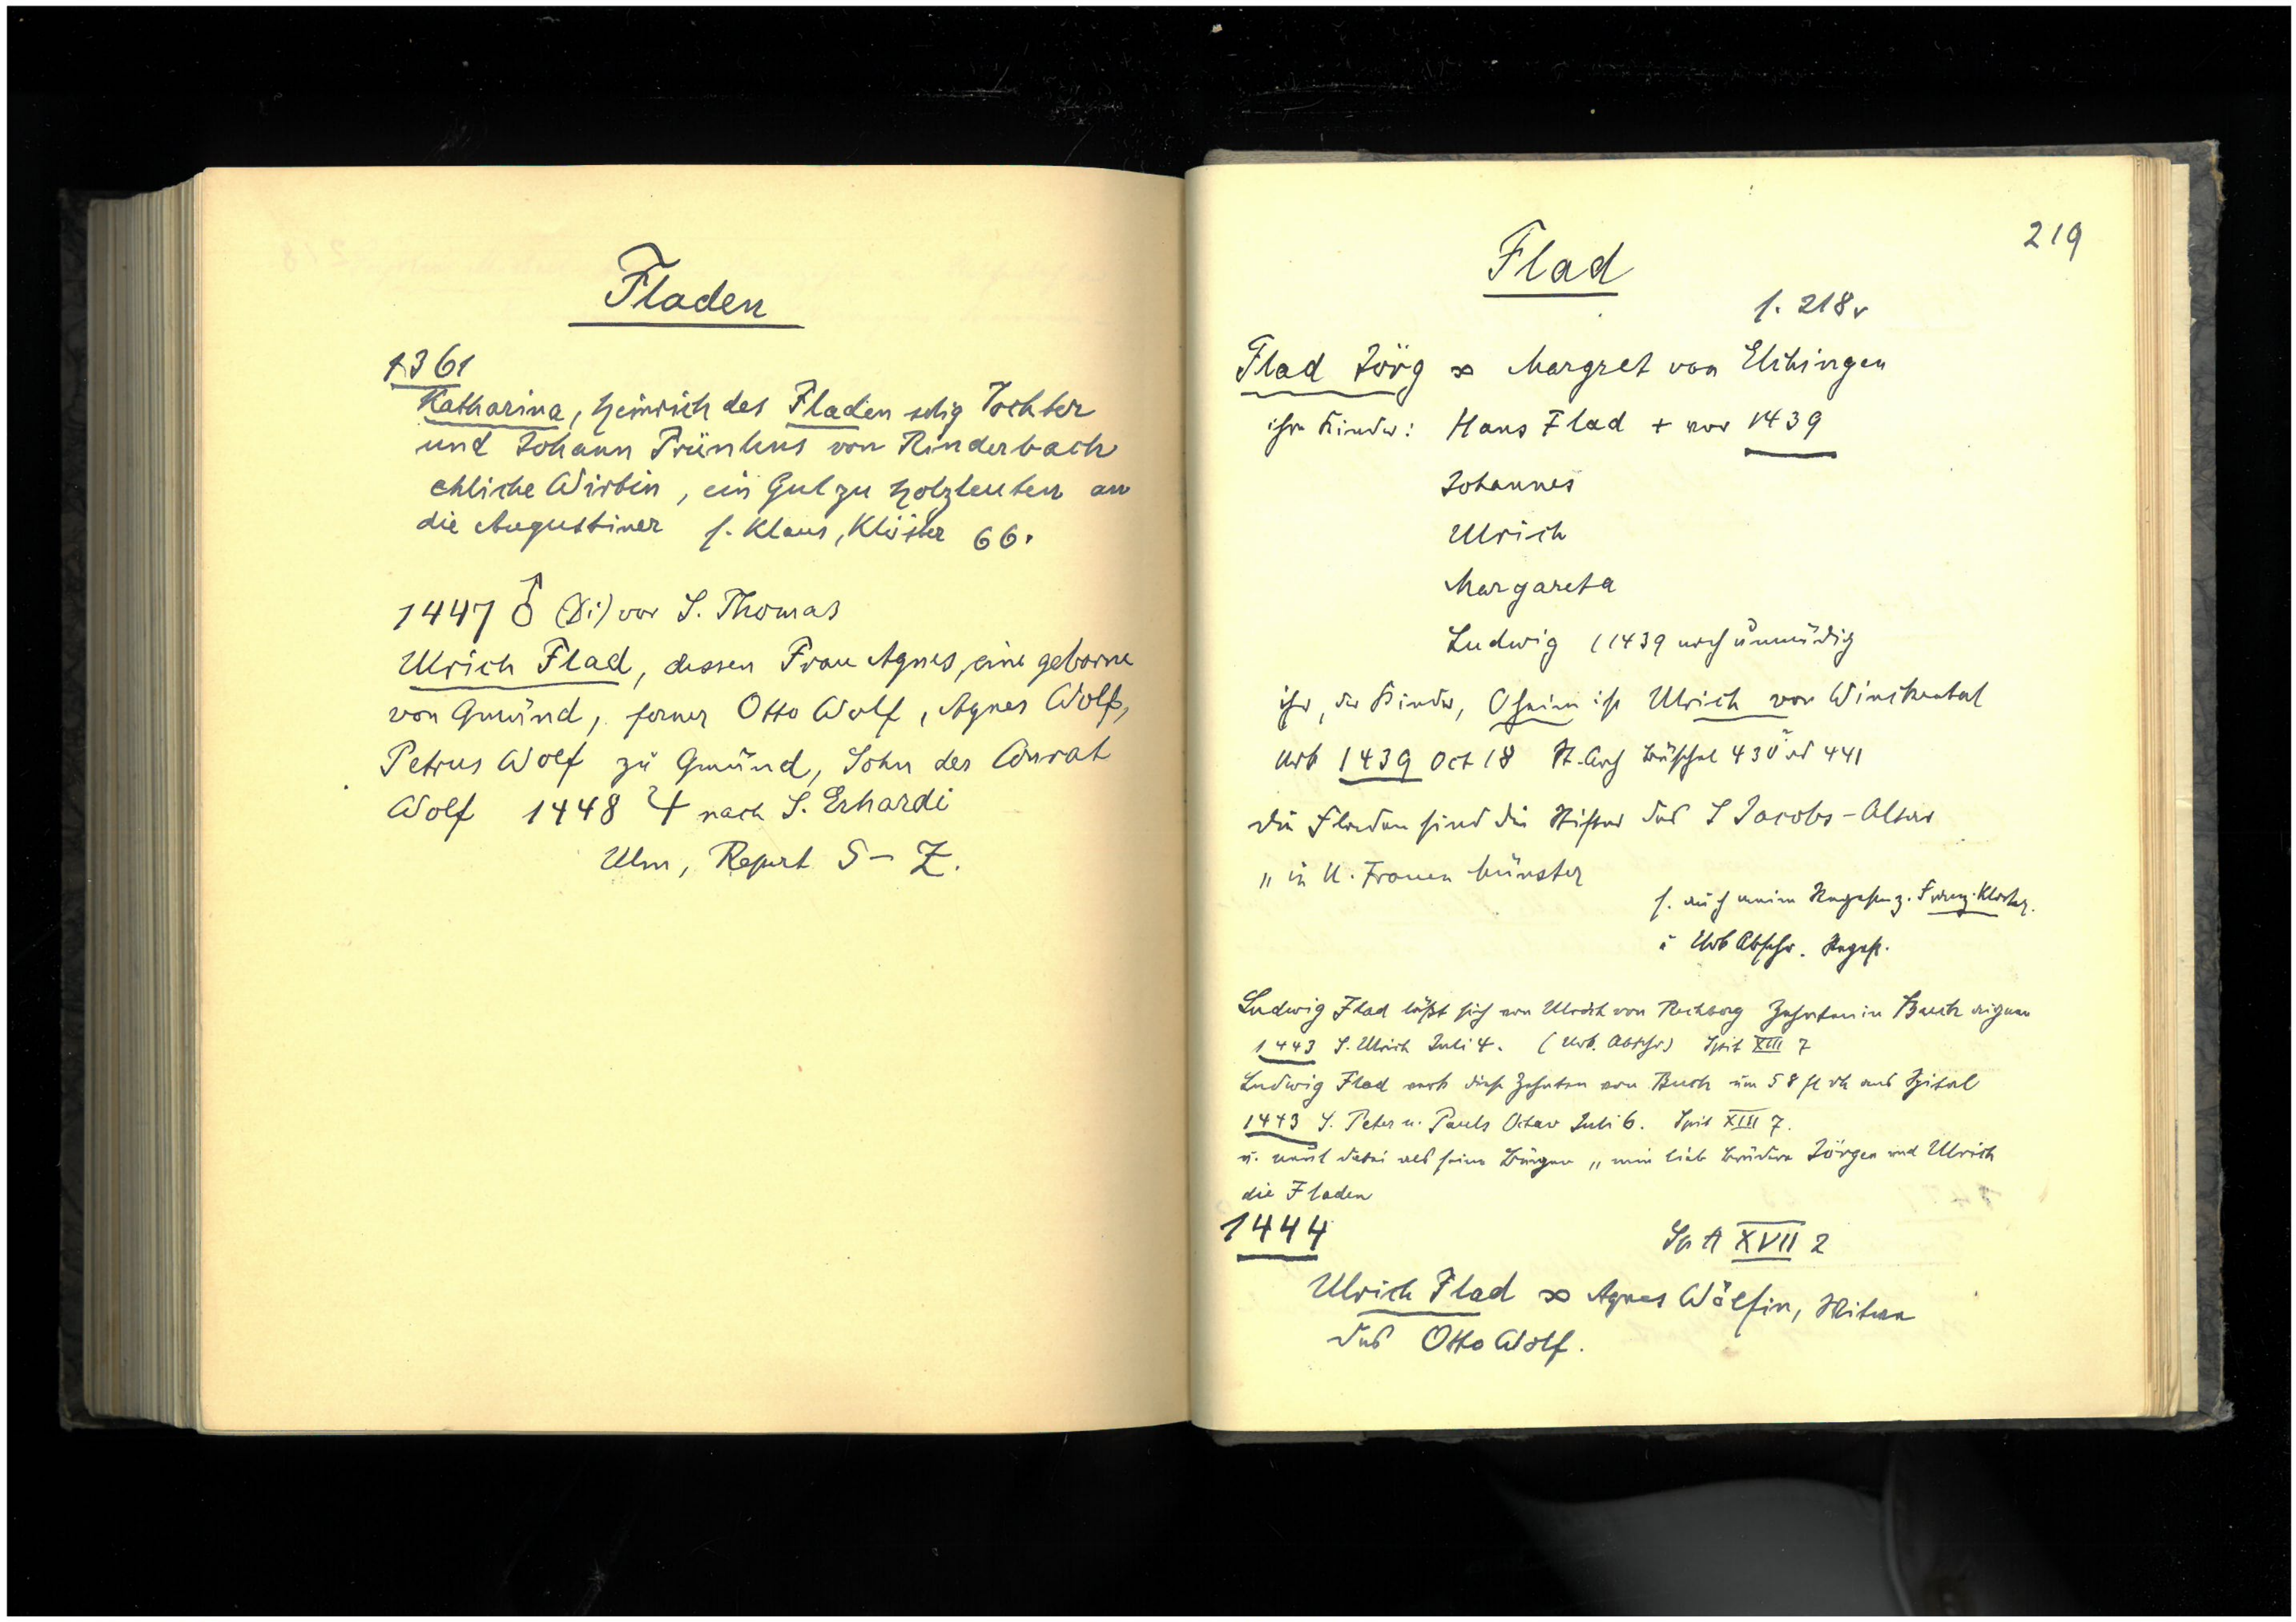 Fladen
1361
Katharina, Heinrich des Fladen selig Tochter
und Johann Trünkens von Rinderbach
ehliche Wirtin, ein Gut zu Holzleuten an
die Augustiner s. Klaus, Klöster 66.
1447 ♂ (Di) vor S. Thomas
Ulrich Flad, dessen Frau Agnes, eine geborne
von Gmünd, ferner Otto Wolf, Agnes Wolf,
Petrus Wolf zu Gmünd, Sohn des Conrat
Wolf 1448 ♃ nach S. Erhardi
Ulm, Repert S – Z.
219
Flad
s. 218v
Flad Jörg ∞ Margret von Elchingen
ihre Kinder: Hans Flad + vor 1439
Johannes
Ulrich
Margareta
Ludwig (1439 noch unmündig
ihr, der Kinder, Oheim ist Ulrich von Winckental
Urk 1439 Oct 18 St. Arch Büschel 430 441
Die Fladen sind die Stifter des S Jacobs-Altar
„ in U. Frauen Münster
s. auch meine Regesten z. Franz. Kloster.
Urk Abschr. Regest.
Ludwig Flad läßt sich von Ulrich von Rechberg Zehnten in Buch eignen
1443 S. Ulrich Juli 4. (Urk. Abschr) Spit XIII 7
Ludwig Flad verk diese Zehnten von Buch um 58 fl rh ans Spital
1443 S. Peter u. Pauls Octav Juli 6. Spit XIII 7.
u. nennt dabei als seine Bürgen „ min lieb Brüdere Jörgen und Ulrich
die Fladen
1444 Sp A XVII 2
Ulrich Flad ∞ Agnes Wölfin, Witwe
des Otto Wolf.